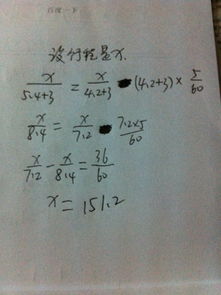 百度一下
设行程是x.
x/(5.4+3) = x/(4.2+3) - (4.2+3) × 5/60
x/8.4 = x/7.2 - 7.2×5/60
x/7.2 - x/8.4 = 36/60
x = 151.2